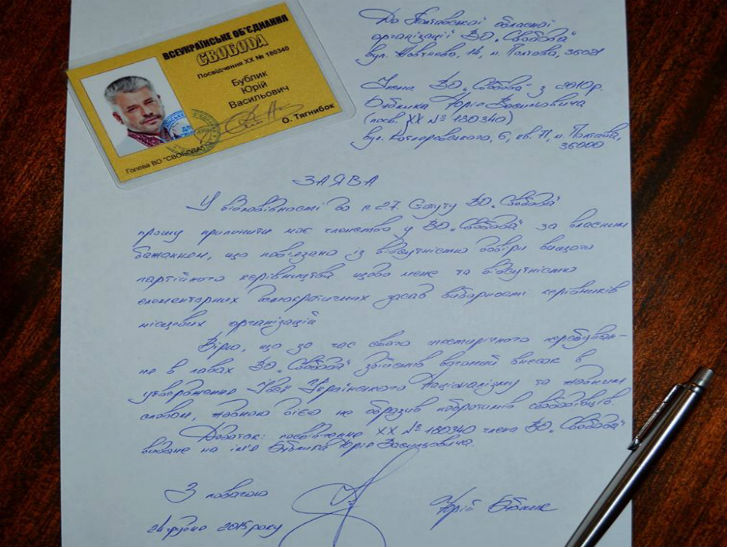 ВСЕУКРАЇНСЬКЕ ОБ'ЄДНАННЯ
СВОБОДА
Посвідчення ХХ № 180340
Бублик
Юрій
Васильович
О. Тягнибок
Голова ВО "СВОБОДА"
До Полтавської обласної
організації ВО „Свобода"
м. Полтава, 36021
члена ВО „Свобода" з 2010р.
Бублика Юрія Васильовича
(посв. ХХ № 180340)
вул. Котляревського, 6, кв. 11, м. Полтава,
36000
ЗАЯВА
У відповідності до п. 27 Статуту ВО „Свобода"
прошу припинити моє членство у ВО „Свобода" за власним
бажанням, що пов'язано із відсутністю довіри вищого
партійного керівництва щодо мене та відсутністю
елементарних демократичних засад виборності керівників
місцевих організацій
Вірю, що за час свого шестирічного перебуван-
ня в лавах ВО „Свобода" здійснив вагомий внесок в
утвердження Ідеї Українського Націоналізму та жодним
словом, жодною дією не образив побратимів свободівців
Додаток: посвідчення ХХ № 180340 члена ВО „Свобода"
видане на ім'я Бублика Юрія Васильовича.
З повагою
Юрій Бублик
2015 року